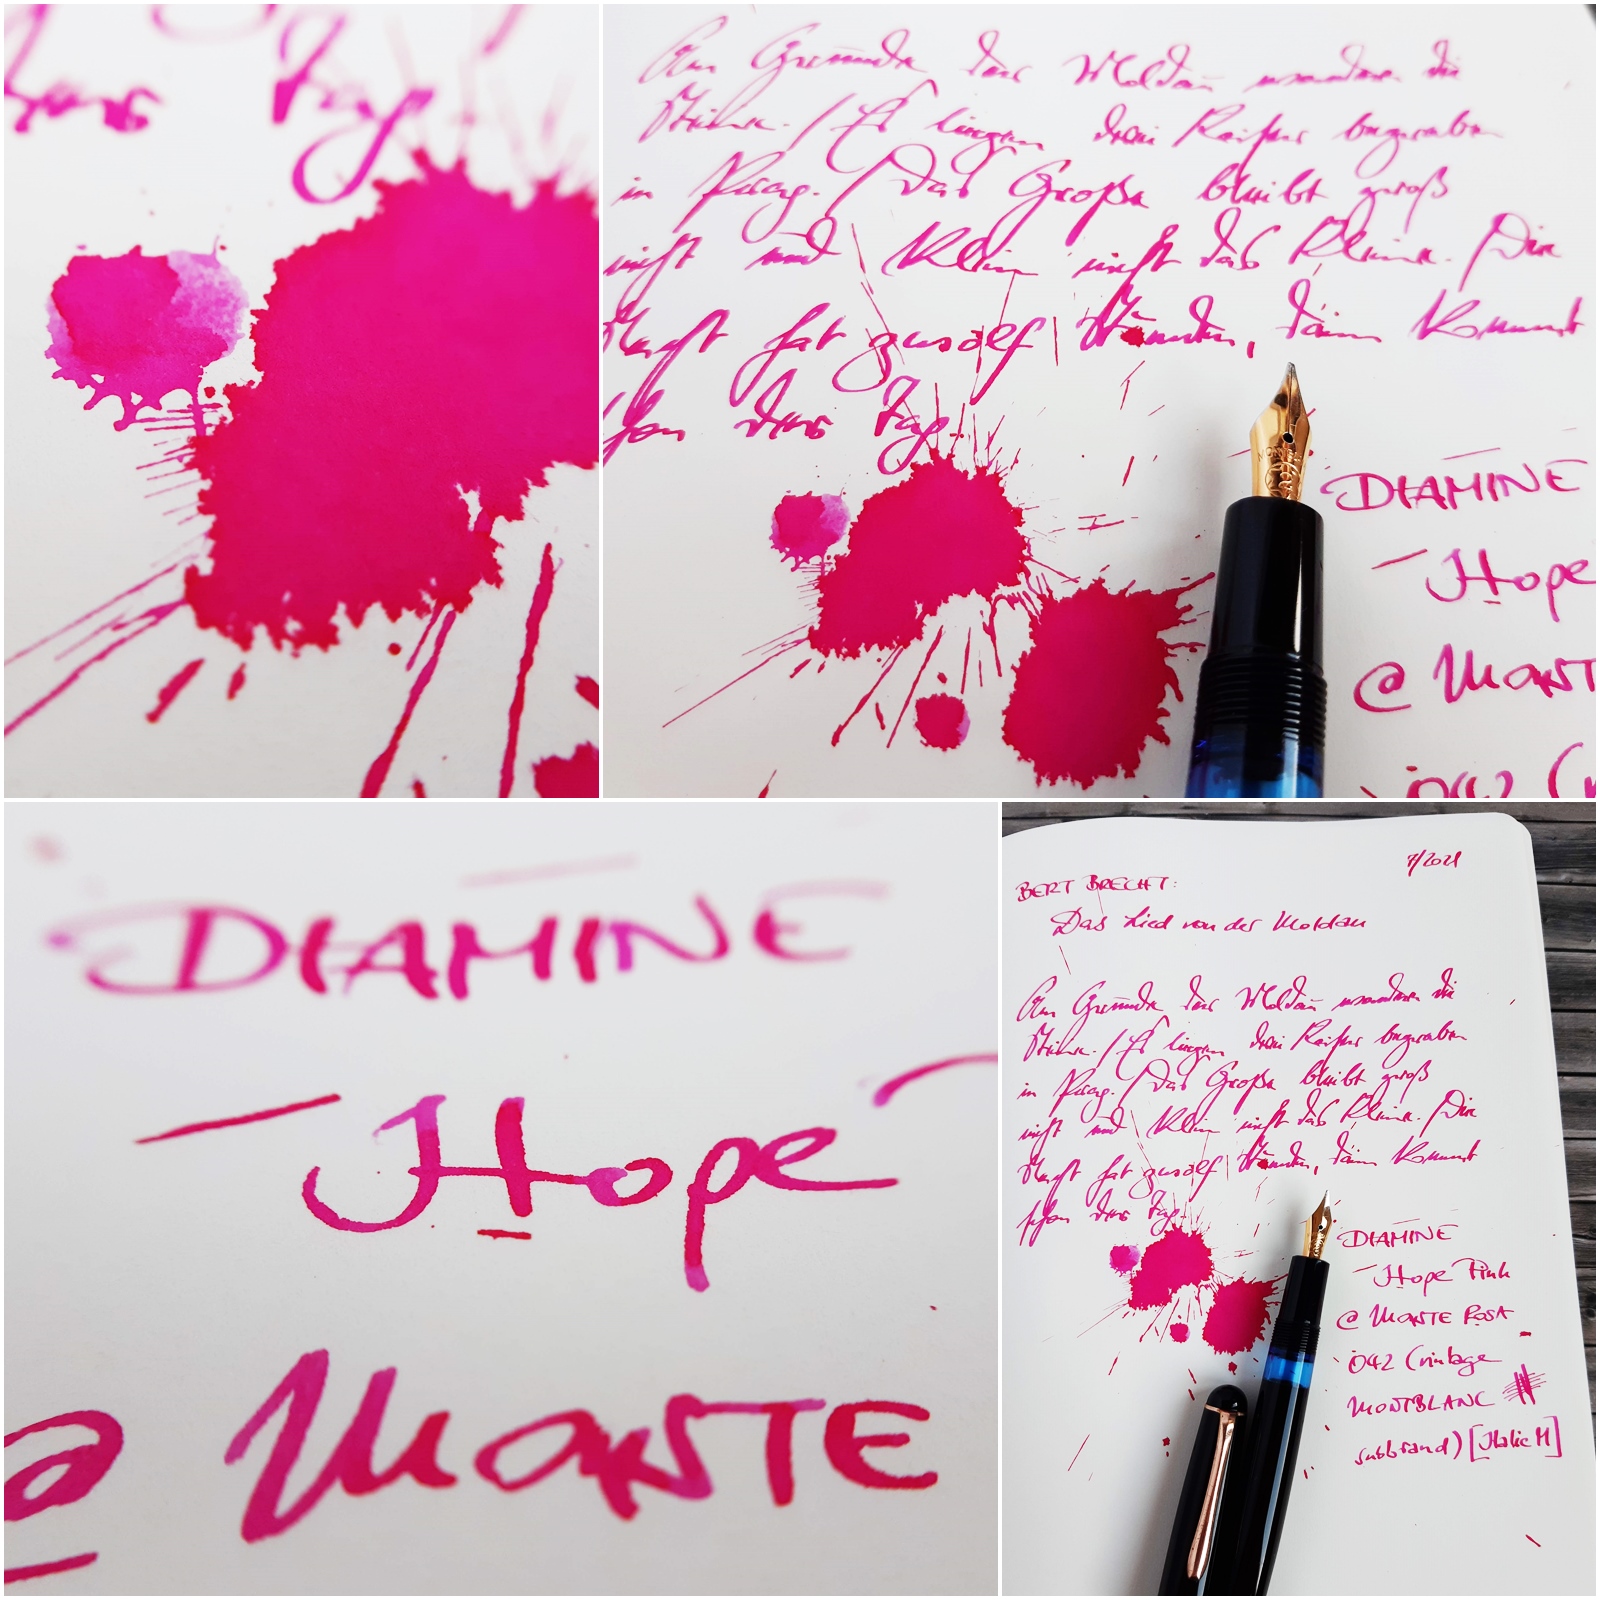 der Tag.
Am Grunde der Moldau wandern die
Steine. / Es liegen drei Kaiser begraben
in Prag. / Das Große bleibt groß
nicht und Klein nicht das Kleine. / Die
Nacht hat zwölf Stunden, dann kommt
schon der Tag.
DIAMINE
- Hope
@ MONTE
042 (
DIAMINE
- Hope
@ MONTE
7/2021
BERT BRECHT:
Das Lied von der Moldau
Am Grunde der Moldau wandern die
Steine. / Es liegen drei Kaiser begraben
in Prag. / Das Große bleibt groß
nicht und Klein nicht das Kleine. / Die
Nacht hat zwölf Stunden, dann kommt
schon der Tag.
DIAMINE
- Hope Pink
@ MONTE ROSA
042 (vintage
MONTBLANC
subbrand) [Italic M]